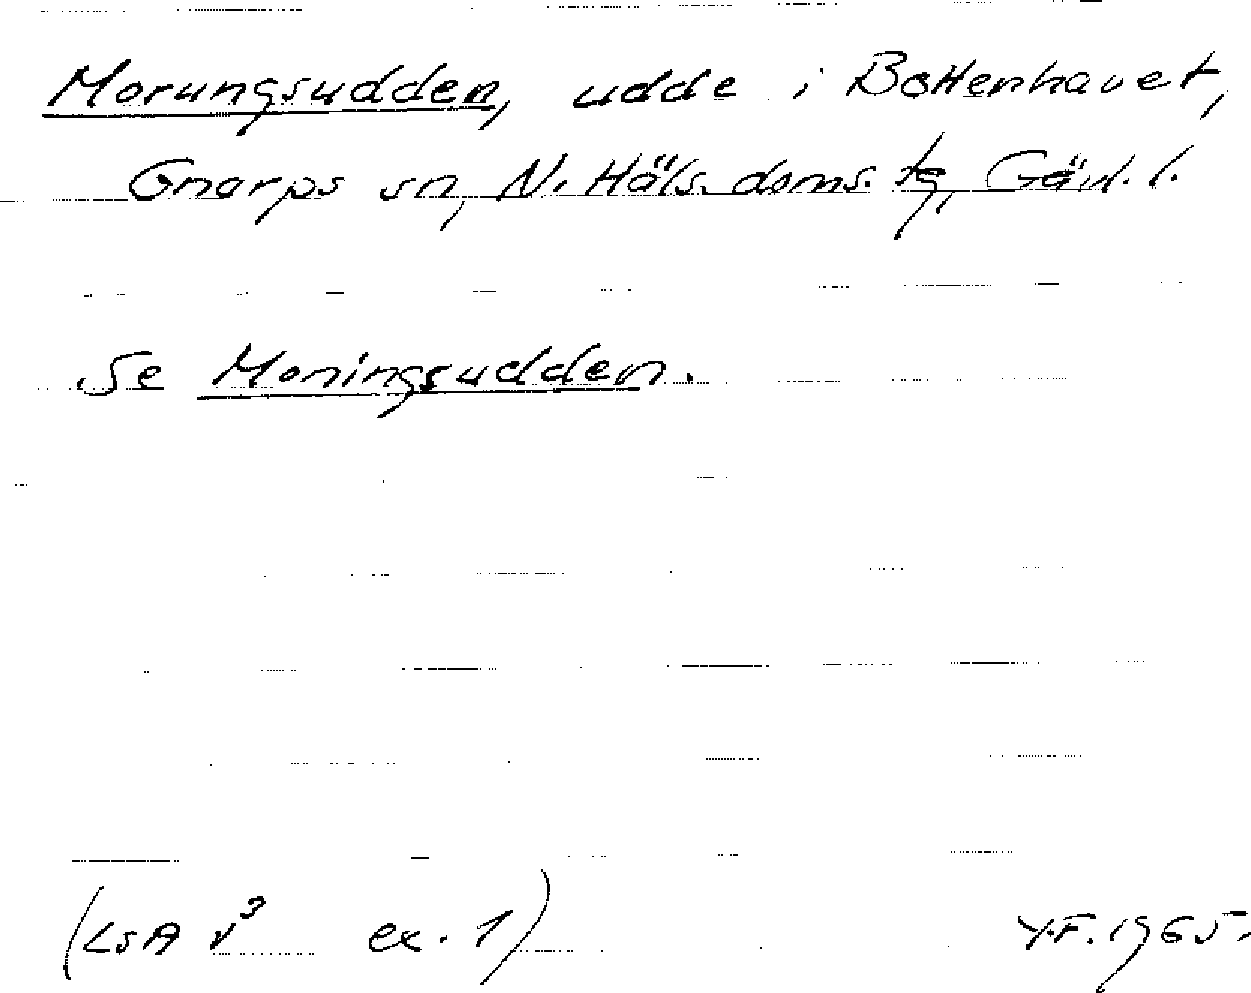 Morungsudden, udde i Bottenhavet,
Gnarps sn, N. Häls. doms. tg, Gävl. l.
Se Moningsudden.
(LsA v³ ex. 1) Y.F. 1965.